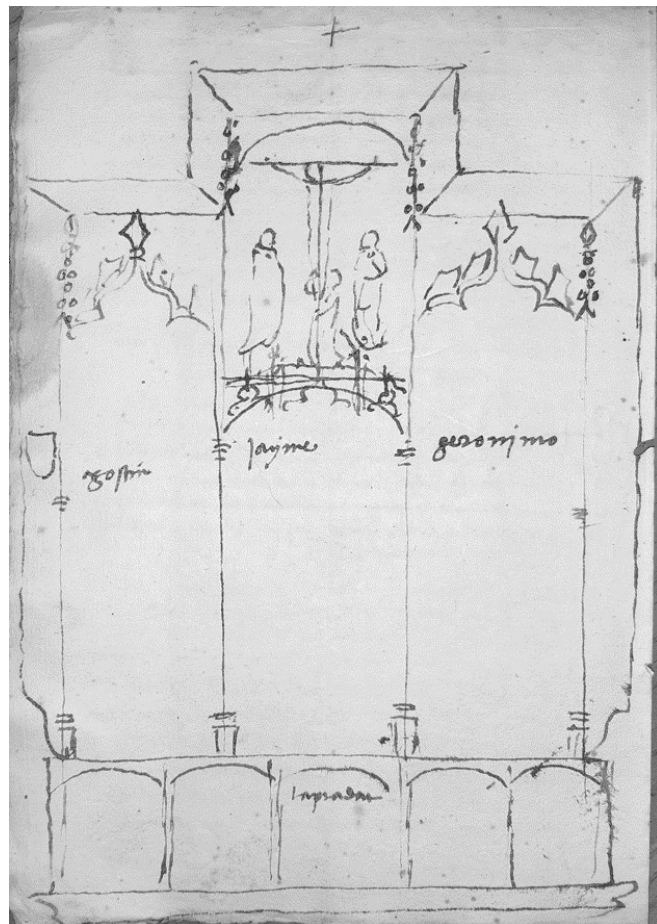 agostin
jayme
geronimo
la piadat